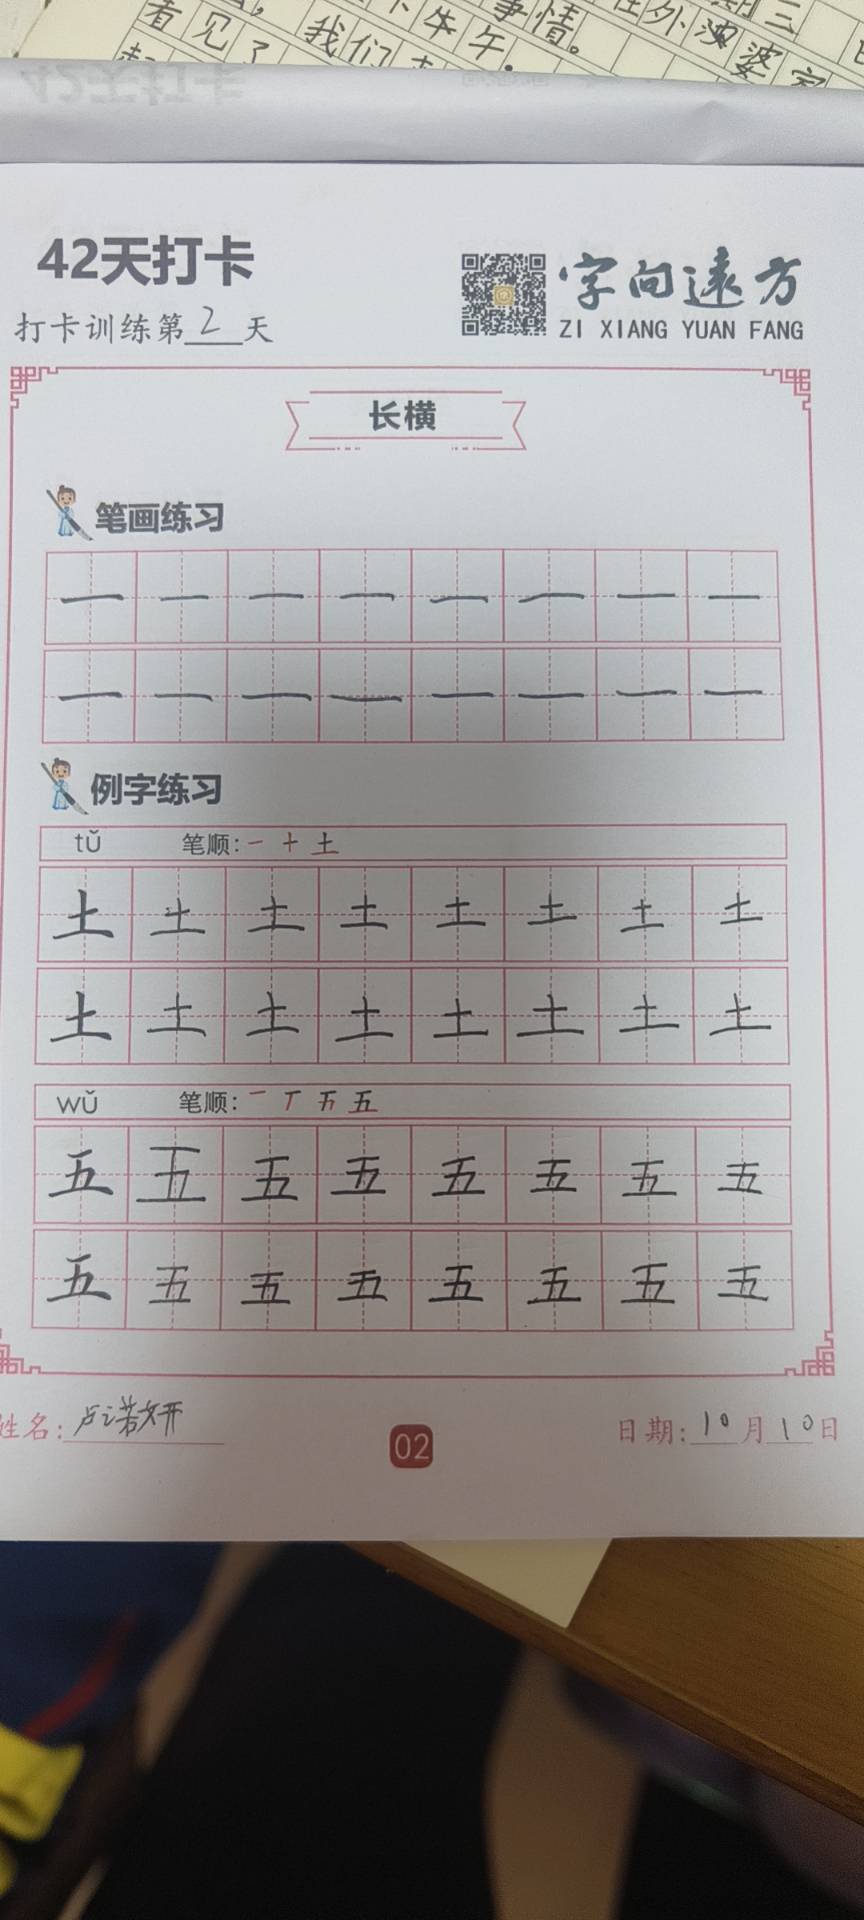 事情。
看见了 我们
牛午。
外澳婆家
42天打卡
字向远方
打卡训练第2天
ZI XIANG YUAN FANG
长横
笔画练习
一 一 一 一 一 一 一 一
一 一 一 一 一 一 一 一
例字练习
tǔ 笔顺: 一 十 土
土 土 土 土 土 土 土 土
土 土 土 土 土 土 土 土
wǔ 笔顺: 一 丅 五 五
五 五 五 五 五 五 五 五
五 五 五 五 五 五 五 五
姓名: 卢诺妍
02
日期: 10月10日